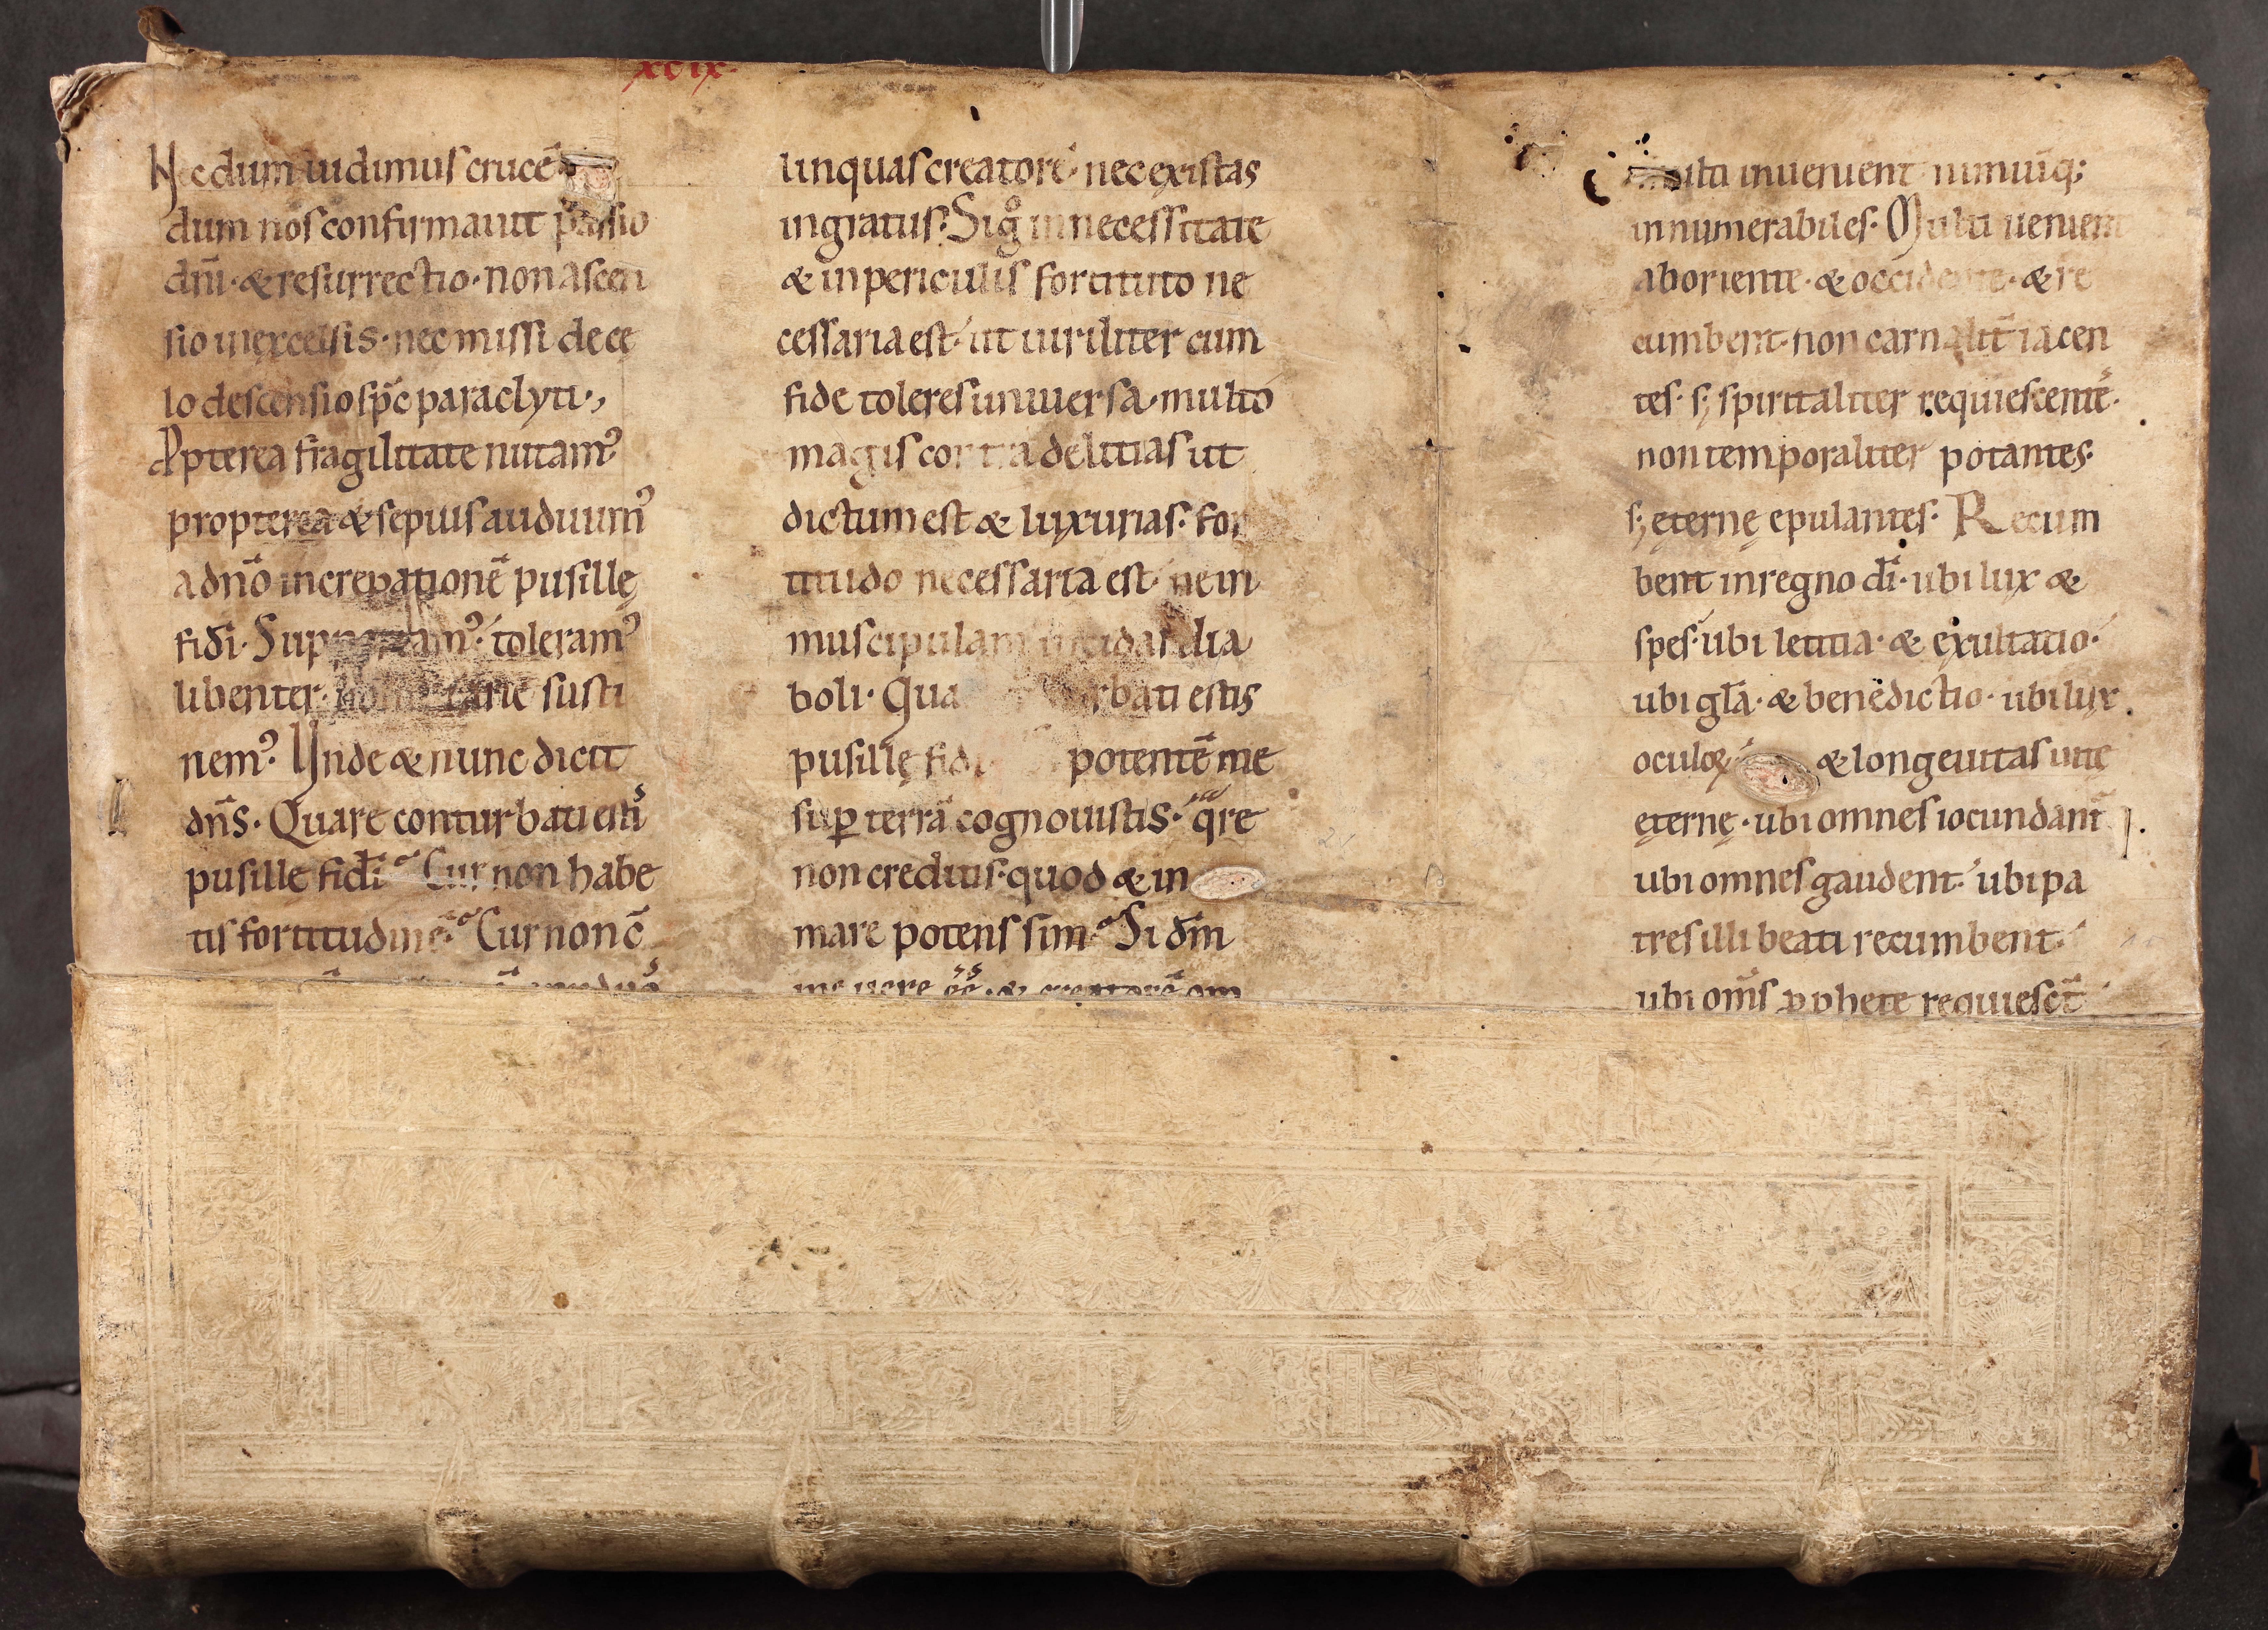 xcix.
Necdum uidimus crucē
dum nos confirmauit passio
dn̄i · & resurrectio · non ascen
sio inexcelsis · nec missi de cę
lo descensio sp̄c paraclyti ·,
Ppterea fragilitate nutam᾽
propterea & sepius audiuim᾽
a dn̄o increpationē pusillę
fidi · toleram᾽
libenter · susti
nem᾽ Unde & nunc dicit
dn̄s · Quare conturbati estis
pusille fidi Cur non habe
tis fortitudinē · Cur non c̄
linquas creatorē · nec existas
ingratus · Sig̊ in necessitate
& in periculis fortituto ne
cessaria est · ut uiriliter cum
fide toleres uniuersa · multo
magis contra delitias ut
dictum est & luxurias · for
titudo necessaria est · ne in
muscipulam incidas dia
boli · Qua rbati estis
pusillę fidi potentē me
suꝑ terrā cognouistis · qre
non creditis · quod & in
mare potens sim · Si dm̄
me uere ee · & creatorē om
multi inuenient nimiūq;
innumerabiles · Multi uenient
ab oriente · & occidente · & re
cumbent · non carnalit̄ iacen
tes · s; spiritaliter requiescent̄ ·
non temporaliter potantes ·
s; ęternę epulantes · Recum
bent in regno di̅ · ubi lux &
spes · ubi letitia · & exultatio ·
ubi gl̄a · & benedictio · ubi lux
oculoꝝ · & longeuitas uitę
ęternę · ubi omnes iocundant̄
ubi omnes gaudent · ubi pa
tres illi beati recumbent ·
ubi om̄s ꝓphete requiesct̄